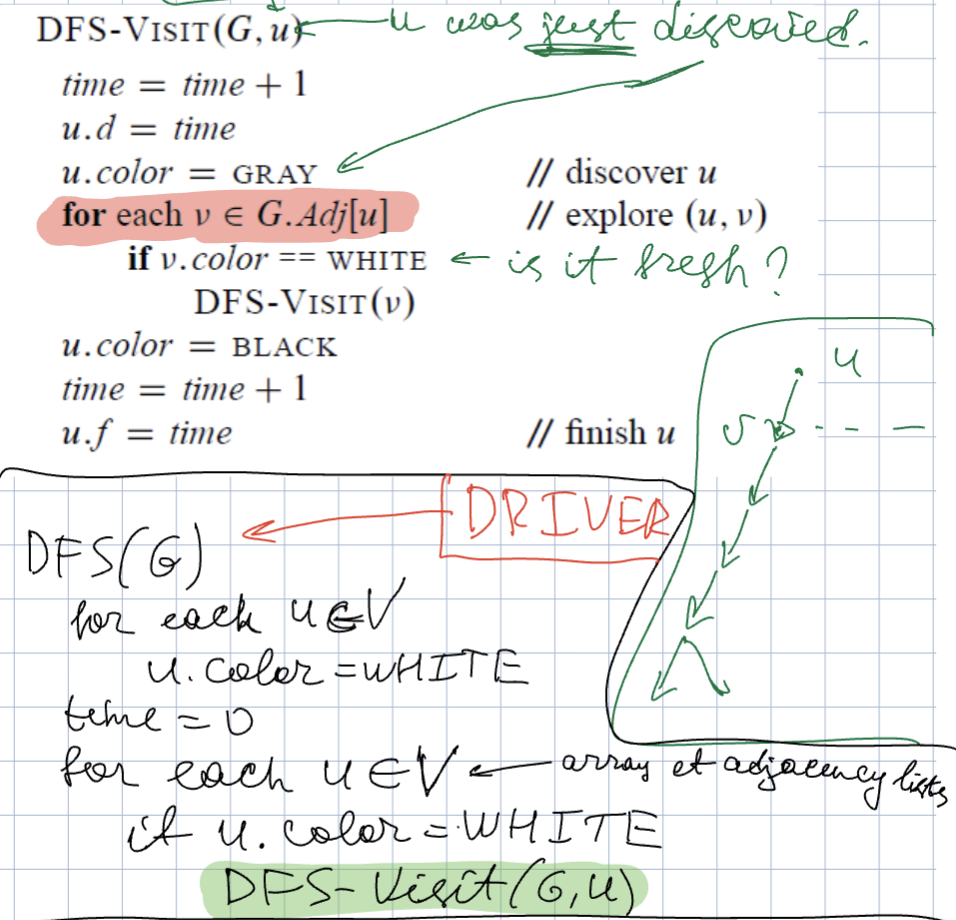 DFS-VISIT(G, u) ← u was just discovered.
time = time + 1
u.d = time
u.color = GRAY // discover u
for each v ∈ G.Adj[u] // explore (u, v)
if v.color == WHITE ← is it fresh?
DFS-VISIT(v)
u.color = BLACK
time = time + 1
u.f = time // finish u
u
v
DRIVER
DFS(G)
for each u ∈ V
u. color = WHITE
time = 0
for each u ∈ V ← array of adjacency lists
if u. color = WHITE
DFS-Visit(G,u)